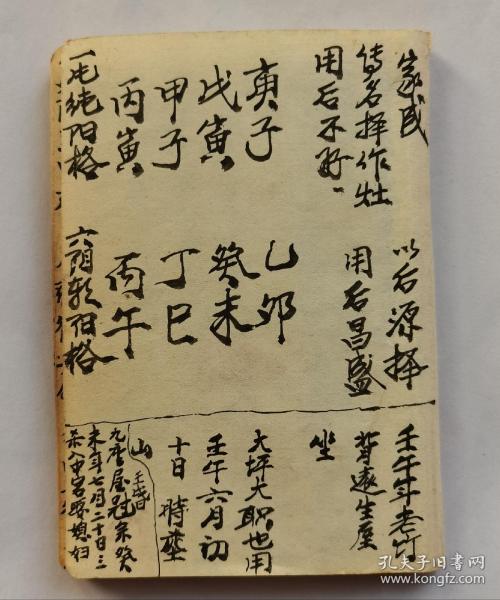 家民
传名择作灶
用后不好.
庚子
戊寅
甲子
丙寅
一屯纯阳格
以后源择
用后昌盛
乙卯
癸未
丁巳
丙午
六阴朝阳格
壬午年老竹
背远生屋
坐
大坪大职也用
壬午六月初
十日 时葬
山
九唐屋冠余癸
未年七月二十日三
杀入中宫
媳妇
孔夫子旧书网
www.kongfz.com